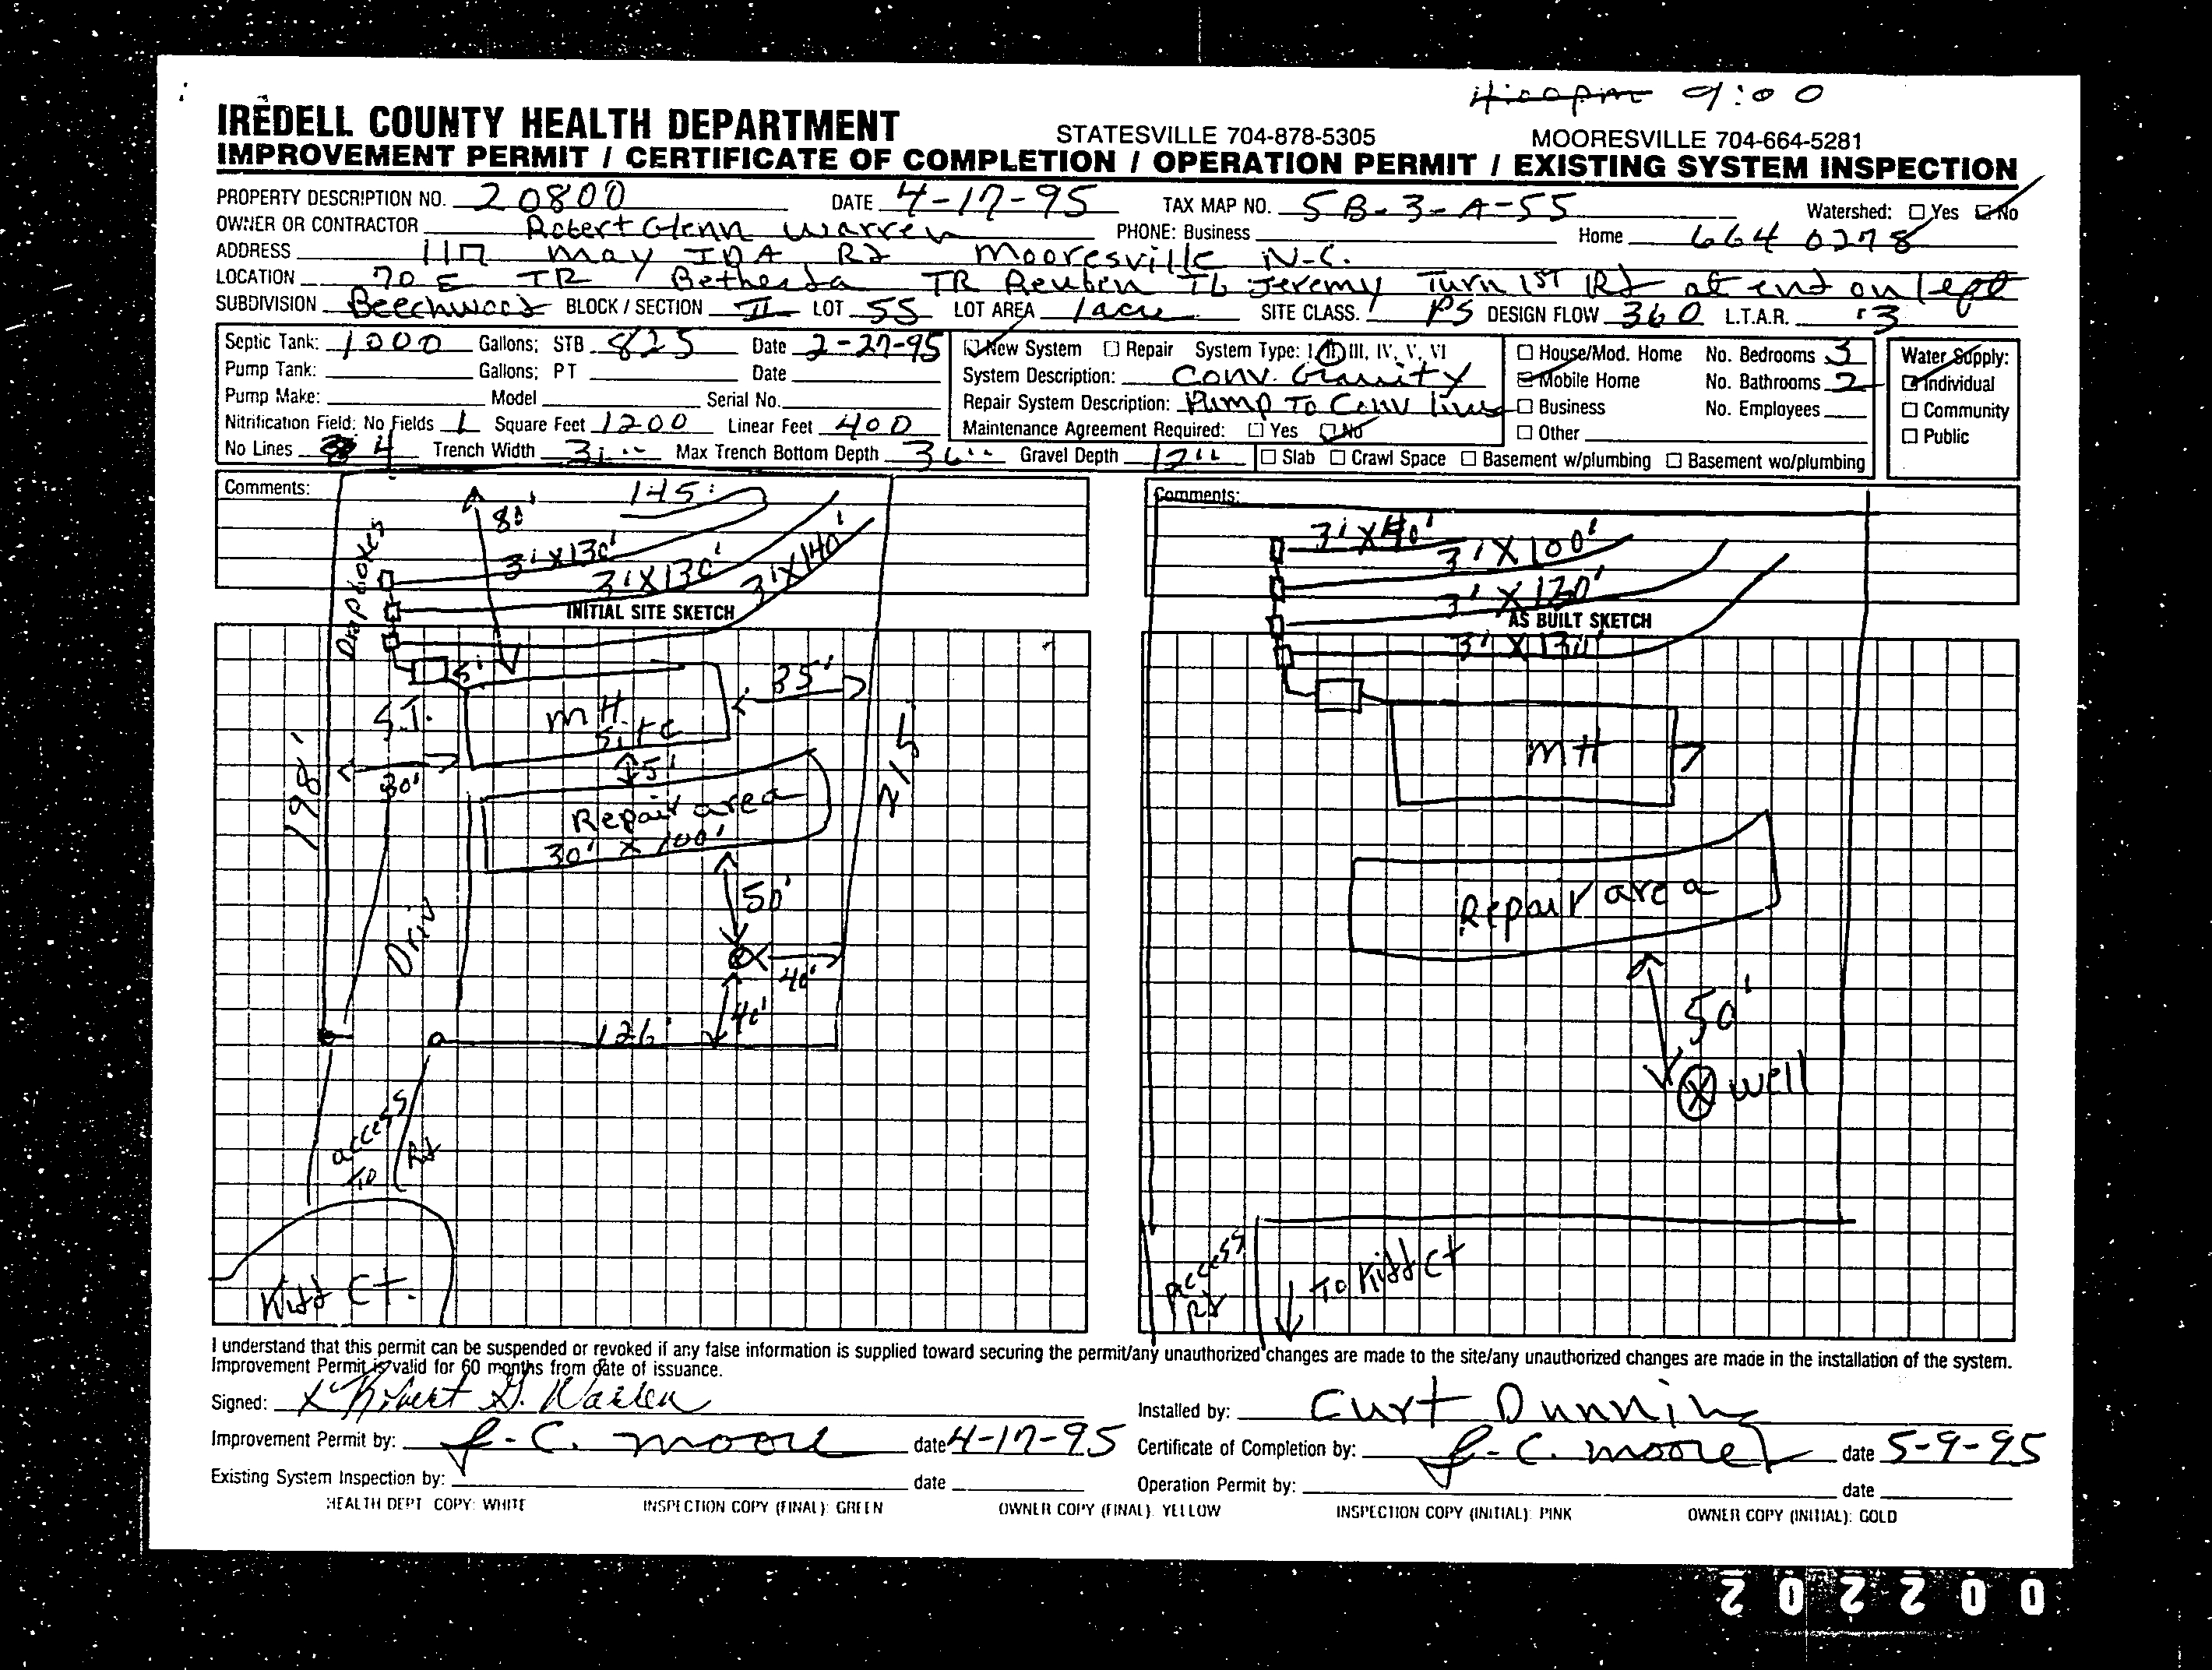 4:00pm 9:00
IREDELL COUNTY HEALTH DEPARTMENT STATESVILLE 704-878-5305 MOORESVILLE 704-664-5281
IMPROVEMENT PERMIT / CERTIFICATE OF COMPLETION / OPERATION PERMIT / EXISTING SYSTEM INSPECTION
PROPERTY DESCRIPTION NO. 20800 DATE 4-17-95 TAX MAP NO. 5B-3-A-55 Watershed: ☐ Yes ☑ No
OWNER OR CONTRACTOR Robert Glenn Warren PHONE: Business Home 664 0278
ADDRESS 117 May IDA Rd Mooresville N.C.
LOCATION 70 E TR Bethesda TR Reuben TL Jeremy Turn 1ST Rd at end on left
SUBDIVISION Beechwood BLOCK / SECTION II LOT 55 LOT AREA 1acre SITE CLASS. PS DESIGN FLOW 360 L.T.A.R. .3
Septic Tank: 1000 Gallons; STB 825 Date 2-27-95
Pump Tank: Gallons; PT Date
Pump Make: Model Serial No.
Nitrification Field: No Fields 1 Square Feet 1200 Linear Feet 400
No Lines 4 Trench Width 3' Max Trench Bottom Depth 36" Gravel Depth 12"
☑ New System ☐ Repair System Type: I, II, III, IV, V, VI
System Description: Conv. Gravity
Repair System Description: Pump To Conv lines
Maintenance Agreement Required: ☐ Yes ☑ No
☐ Slab ☐ Crawl Space ☐ Basement w/plumbing ☐ Basement wo/plumbing
☐ House/Mod. Home No. Bedrooms 3
☑ Mobile Home No. Bathrooms 2
☐ Business No. Employees
☐ Other
Water Supply:
☑ Individual
☐ Community
☐ Public
Comments:
145'
80'
3'X130'
3'X130'
3'X140'
Drop boxes
INITIAL SITE SKETCH
5'
S.T.
MH
Site
35'
30'
198'
215'
5'
Repair area
30' X 100'
50'
Driv
40'
40'
126'
access
To
Rd
Kidd Ct.
Comments:
3'X40'
3'X100'
3'X130'
AS BUILT SKETCH
3'X130'
MH
Repair area
50'
well
Access
Rd
To Kidd Ct
I understand that this permit can be suspended or revoked if any false information is supplied toward securing the permit/any unauthorized changes are made to the site/any unauthorized changes are made in the installation of the system.
Improvement Permit is valid for 60 months from date of issuance.
Signed: X Robert G. Warren
Installed by: Curt Dunning
Improvement Permit by: J.C. Moore date 4-17-95
Certificate of Completion by: J.C. Moore date 5-9-95
Existing System Inspection by: date
Operation Permit by: date
HEALTH DEPT COPY: WHITE INSPECTION COPY (FINAL): GREEN OWNER COPY (FINAL): YELLOW INSPECTION COPY (INITIAL): PINK OWNER COPY (INITIAL): GOLD
002202